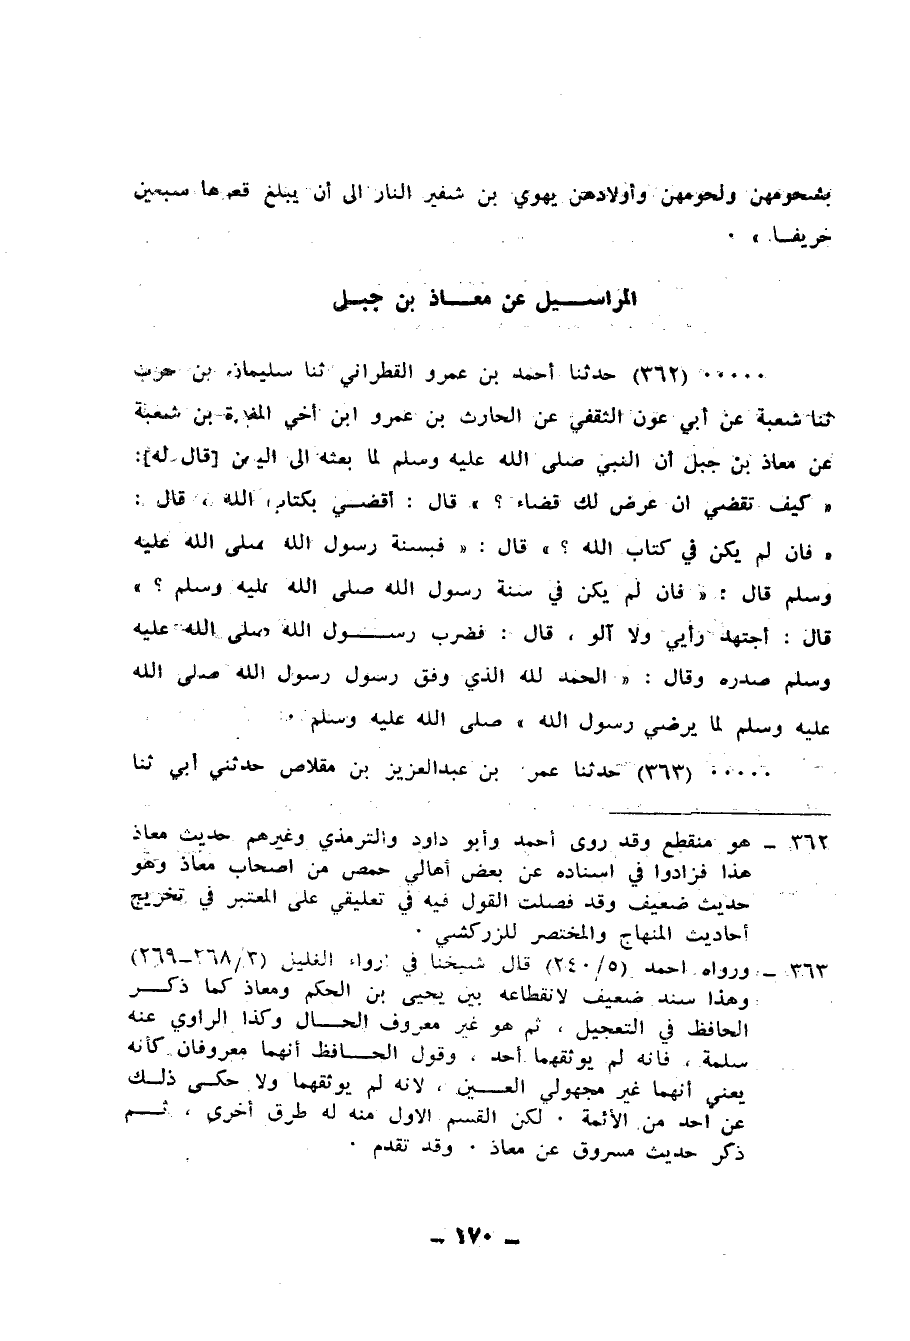 بشحومهن ولحومهن وأولادهن يهوي بن شفير النار الى أن يبلغ قعرها سبعين
خريفا » ٠
المراسيل عن معاذ بن جبل
٠٠٠٠٠ (٣٦٢) حدثنا أحمد بن عمرو القطراني ثنا سليمان بن حرب
ثنا شعبة عن أبي عون الثقفي عن الحارث بن عمرو ابن أخي المغيرة بن شعبة
عن معاذ بن جبل أن النبي صلى الله عليه وسلم لما بعثه الى اليمن [قال له]:
« كيف تقضي ان عرض لك قضاء ؟ » قال : أقضي بكتاب الله ، قال :
« فان لم يكن في كتاب الله ؟ » قال : « فبسنة رسول الله صلى الله عليه
وسلم قال : « فان لم يكن في سنة رسول الله صلى الله عليه وسلم ؟ »
قال : أجتهد رأيي ولا آلو ، قال : فضرب رسول الله صلى الله عليه
وسلم صدره وقال : « الحمد لله الذي وفق رسول رسول الله صلى الله
عليه وسلم لما يرضي رسول الله » صلى الله عليه وسلم ٠
٠٠٠٠٠ (٣٦٣) حدثنا عمر بن عبدالعزيز بن مقلاص حدثني أبي ثنا
٣٦٢ ـ هو منقطع وقد روى أحمد وأبو داود والترمذي وغيرهم حديث معاذ
هذا فزادوا في اسناده عن بعض أهالي حمص من اصحاب معاذ وهو
حديث ضعيف وقد فصلت القول فيه في تعليقي على المعتبر في تخريج
أحاديث المنهاج والمختصر للزركشي ٠
٣٦٣ ـ ورواه احمد (٢٤٠/٥) قال شيخنا في ارواء الغليل (٢٦٨/٣ـ٢٦٩)
وهذا سند ضعيف لانقطاعه بين يحيى بن الحكم ومعاذ كما ذكر
الحافظ في التعجيل ، ثم هو غير معروف الحال وكذا الراوي عنه
سلمة ، فانه لم يوثقهما أحد ، وقول الحافظ أنهما معروفان كأنه
يعني أنهما غير مجهولي العين ، لانه لم يوثقهما ولا حكى ذلك
عن أحد من الأئمة ٠ لكن القسم الاول منه له طرق أخرى ، ثم
ذكر حديث مسروق عن معاذ ٠ وقد تقدم ٠
ـ ١٧٠ ـ